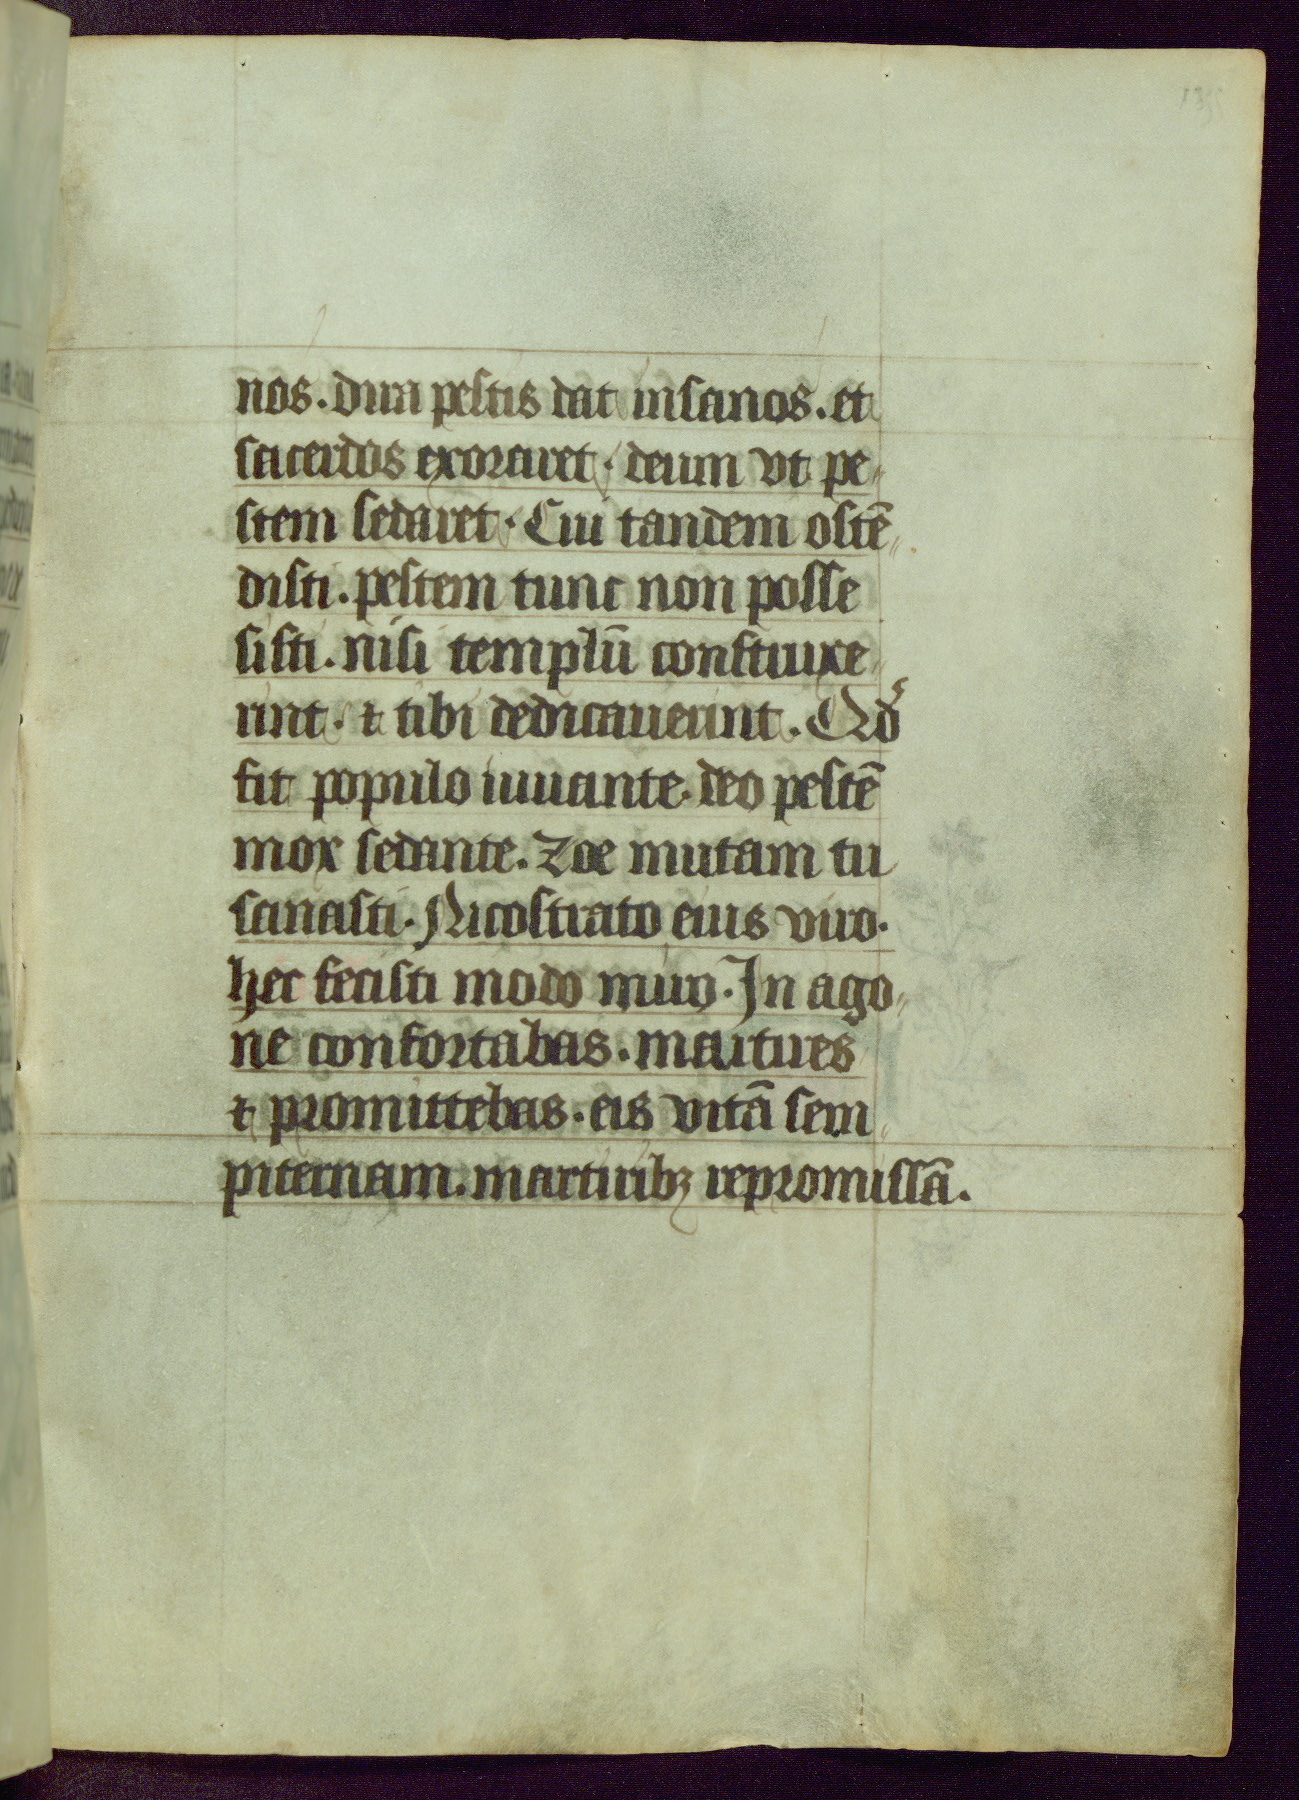 nos. dum pestis dat insanos. et
sacerdos exoraret. deum vt pe„
stem sedaret. Cui tandem ostē„
disti. pestem tunc non posse
sisti. nisi templū construxe„
rint. ⁊ tibi dedicauerint.
fit populo iuuante. deo pestē
mox sedante. Zoe mutam tu
sanasti. Nicostrato eius viro.
hec fecisti modo miro. In ago„
ne confortabas. martires
⁊ promittebas. eis vitā sem„
piternam. martiribꝫ repromissā.